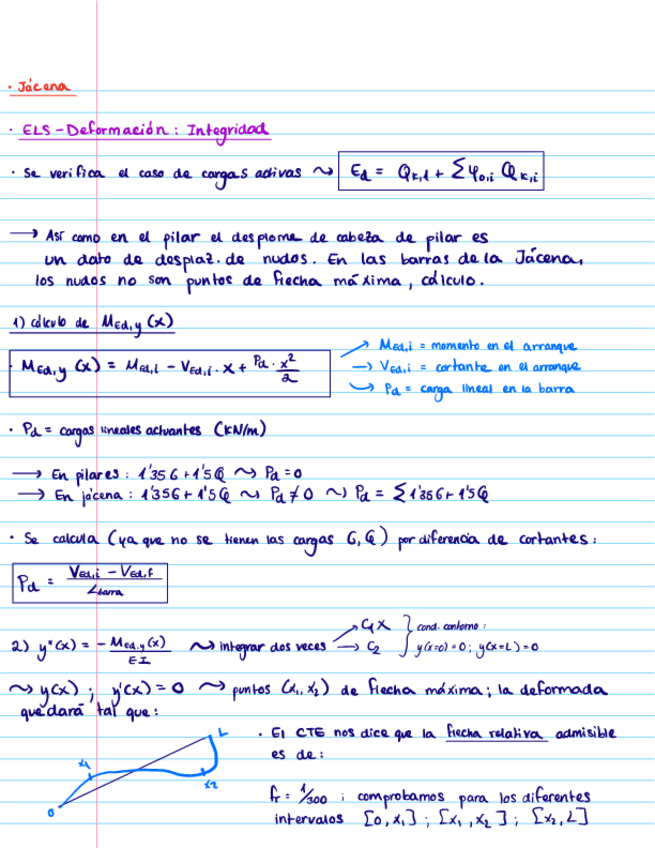 · Jácena
· ELS - Deformación: Integridad
· Se verifica el caso de cargas activas ⤳ Ed = Qk,1 + Σ φ0,i Qk,i
→ Así como en el pilar el desplome de cabeza de pilar es
un dato de desplaz. de nudos. En las barras de la Jácena,
los nudos no son puntos de flecha máxima, cálculo.
1) cálculo de MEd,y (x)
MEd,y (x) = MEd,i - VEd,i · x + Pd · x²/2
→ MEd,i = momento en el arranque
→ VEd,i = cortante en el arranque
→ Pd = carga lineal en la barra
· Pd = cargas lineales actuantes (KN/m)
→ En pilares: 1'35G + 1'5Q ⤳ Pd = 0
→ En jácena: 1'35G + 1'5Q ⤳ Pd ≠ 0 ⤳ Pd = Σ 1'35G + 1'5Q
· Se calcula (ya que no se tienen las cargas G, Q) por diferencia de cortantes:
Pd = (VEd,i - VEd,f) / Lbarra
2) y''(x) = -MEd,y(x) / EI ⤳ integrar dos veces → C1X → C2 } cond. contorno: y(x=0) = 0; y(x=L) = 0
⤳ y(x); y'(x) = 0 ⤳ puntos (x1, x2) de flecha máxima; la deformada
quedará tal que:
0 x1 x2 L
· El CTE nos dice que la flecha relativa admisible
es de:
fr = 1/300 ; comprobamos para los diferentes
intervalos [0, x1]; [x1, x2]; [x2, L]